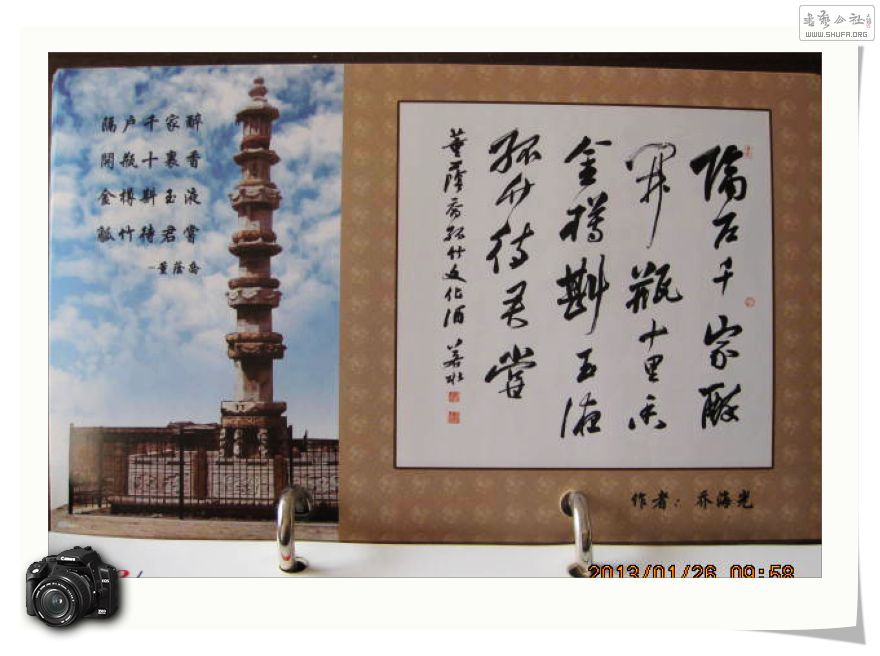 书艺公社
WWW.SHUFA.ORG
隔户千家醉
開瓶十裏香
金樽斟玉液
孤竹待君嘗
-董蔭喬
隔户千家醉
開瓶十里香
金樽斟玉液
孤竹待君嘗
董蔭喬孤竹文化酒 若水
作者：乔海光
2013/01/26 09:58
Canon
EOS